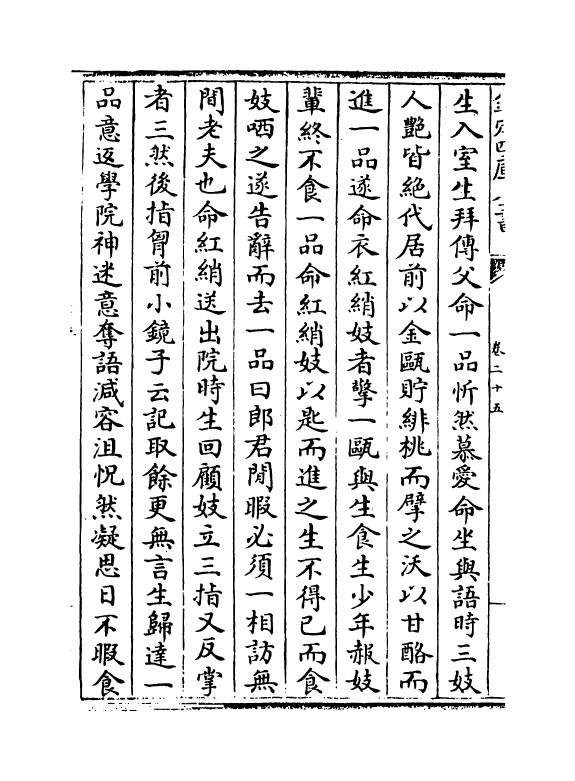 生入室生拜傳父命一品忻然慕愛命坐與語時三妓
人艶皆絶代居前以金甌貯緋桃而擘之沃以甘酪而
進一品遂命衣紅綃妓者擎一甌與生食生少年赧妓
輩終不食一品命紅綃妓以匙而進之生不得已而食
妓哂之遂告辭而去一品曰郎君閒暇必須一相訪無
間老夫也命紅綃送出院時生回顧妓立三指又反掌
者三然後指胷前小鏡子云記取餘更無言生歸達一
品意返學院神迷意奪語減容沮怳然凝思日不暇食
卷二十五